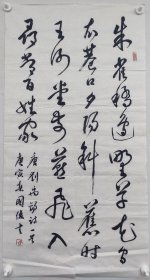 朱雀橋邊野草花烏
衣巷口夕陽斜舊時
王謝堂前燕飛入
尋常百姓家
唐劉禹錫詩一首
庚寅